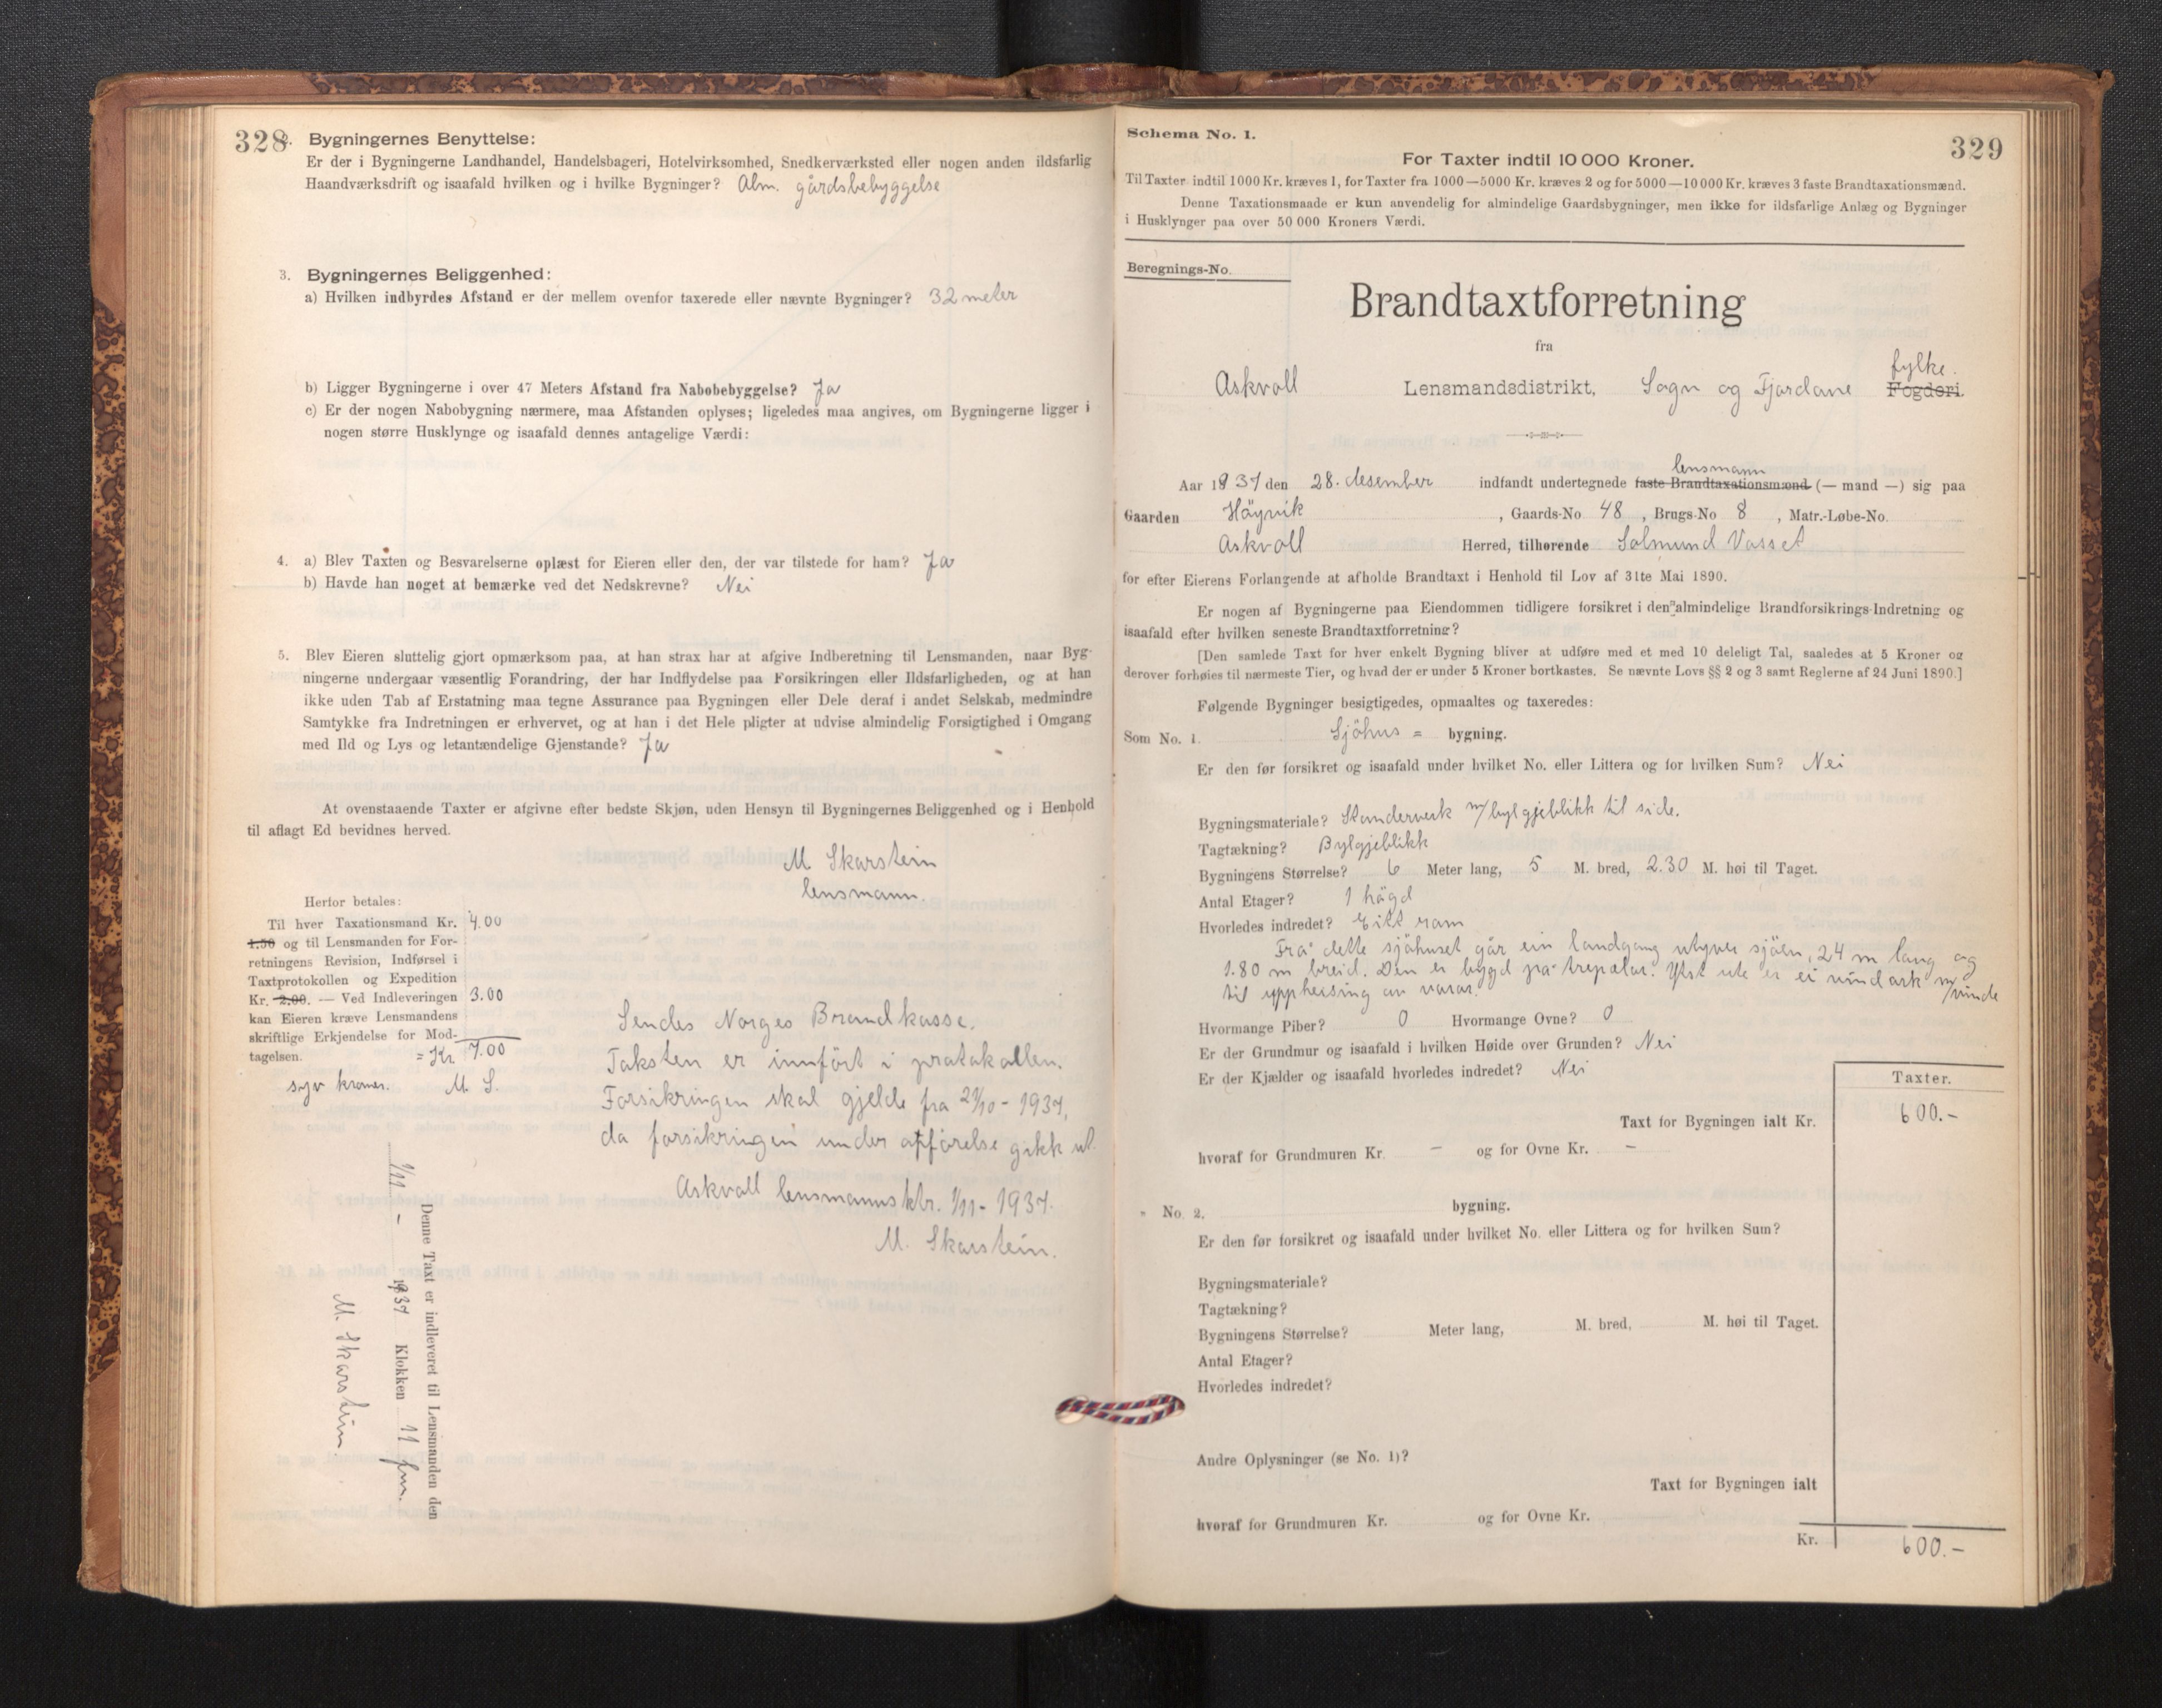 328
2. Bygningernes Benyttelse:
Er der i Bygningerne Landhandel, Handelsbageri, Hotelvirksomhed, Snedkerværksted eller nogen anden ildsfarlig
Haandværksdrift og isaafald hvilken og i hvilke Bygninger? Alm. gårdsbebyggelse
3. Bygningernes Beliggenhed:
a) Hvilken indbyrdes Afstand er der mellem ovenfor taxerede eller nævnte Bygninger? 32 meter
b) Ligger Bygningerne i over 47 Meters Afstand fra Nabobebyggelse? Ja
c) Er der nogen Nabobygning nærmere, maa Afstanden oplyses; ligeledes maa angives, om Bygningerne ligger i
nogen større Husklynge og isaafald dennes antagelige Værdi:
4. a) Blev Taxten og Besvarelserne oplæst for Eieren eller den, der var tilstede for ham? Ja
b) Havde han noget at bemærke ved det Nedskrevne? Nei
5. Blev Eieren sluttelig gjort opmærksom paa, at han strax har at afgive Indberetning til Lensmanden, naar Byg-
ningerne undergaar væsentlig Forandring, der har Indflydelse paa Forsikringen eller Ildsfarligheden, og at han
ikke uden Tab af Erstatning maa tegne Assurance paa Bygningen eller Dele deraf i andet Selskab, medmindre
Samtykke fra Indretningen er erhvervet, og at han i det Hele pligter at udvise almindelig Forsigtighed i Omgang
med Ild og Lys og letantændelige Gjenstande? Ja
At ovenstaaende Taxter er afgivne efter bedste Skjøn, uden Hensyn til Bygningernes Beliggenhed og i Henhold
til aflagt Ed bevidnes herved.
M Skarstein
lensmann.
Herfor betales:
Til hver Taxationsmand Kr. 4.00
1.50 og til Lensmanden for For-
retningens Revision, Indførsel i
Taxtprotokollen og Expedition
Kr. 2.00. — Ved Indleveringen 3.00
kan Eieren kræve Lensmandens
skriftlige Erkjendelse for Mod-
tagelsen. = Kr. 7.00
syv kroner. M. S.
Sendes Norges Brandkasse.
Taksten er innført i protokollen.
Forsikringen skal gjelde fra 27/10 - 1937,
da forsikringen under oppførelse gikk ut.
Askvoll lensmannsktr. 1/11 - 1937.
M. Skarstein.
Denne Taxt er indleveret til Lensmanden den
1/11 - 1937 Klokken 11 fm.
M. Skarstein
329
Schema No. 1.
For Taxter indtil 10 000 Kroner.
Til Taxter indtil 1000 Kr. kræves 1, for Taxter fra 1000—5000 Kr. kræves 2 og for 5000—10 000 Kr. kræves 3 faste Brandtaxationsmænd.
Denne Taxationsmaade er kun anvendelig for almindelige Gaardsbygninger, men ikke for ildsfarlige Anlæg og Bygninger
i Husklynger paa over 50 000 Kroners Værdi.
Beregnings-No.
Brandtaxtforretning
fra
fylke.
Askvoll Lensmandsdistrikt, Sogn og Fjordane Fogderi.
lensmann
Aar 1937 den 28. desember indfandt undertegnede faste Brandtaxationsmænd (— mand —) sig paa
Gaarden Høyvik, Gaards-No 48, Brugs-No 8, Matr.-Løbe-No.
Askvoll Herred, tilhørende Salmund Vasset
for efter Eierens Forlangende at afholde Brandtaxt i Henhold til Lov af 31te Mai 1890.
Er nogen af Bygningerne paa Eiendommen tidligere forsikret i den almindelige Brandforsikrings-Indretning og
isaafald efter hvilken seneste Brandtaxtforretning?
[Den samlede Taxt for hver enkelt Bygning bliver at udføre med et med 10 deleligt Tal, saaledes at 5 Kroner og
derover forhøies til nærmeste Tier, og hvad der er under 5 Kroner bortkastes. Se nævnte Lovs §§ 2 og 3 samt Reglerne af 24 Juni 1890.]
Følgende Bygninger besigtigedes, opmaaltes og taxeredes:
Som No. 1. Sjøhus = bygning.
Er den før forsikret og isaafald under hvilket No. eller Littera og for hvilken Sum? Nei
Bygningsmateriale? Standerverk m/bylgjeblikk til side.
Tagtækning? Bylgjeblikk
Bygningens Størrelse? 6 Meter lang, 5 M. bred, 2.30 M. høi til Taget.
Antal Etager? 1 høgd
Hvorledes indredet? Eitt rom
Frå dette sjøhuset går ein landgang utyver sjøen, 24 m lang og
1.80 m breid. Den er bygd på trepelar. Ytst ute er ei vindark m/vinde
til uppheising av varar.
Hvormange Piber? 0 Hvormange Ovne? 0
Er der Grundmur og isaafald i hvilken Høide over Grunden? Nei
Er der Kjælder og isaafald hvorledes indredet? Nei
Taxter.
Taxt for Bygningen ialt Kr. 600.-
hvoraf for Grundmuren Kr. — og for Ovne Kr. —
" No. 2. bygning.
Er den før forsikret og isaafald under hvilket No. eller Littera og for hvilken Sum?
Bygningsmateriale?
Tagtækning?
Bygningens Størrelse? Meter lang, M. bred, M. høi til Taget.
Antal Etager?
Hvorledes indredet?
Andre Oplysninger (se No. 1)?
Taxt for Bygningen ialt
hvoraf for Grundmuren Kr. og for Ovne Kr.
Kr. 600.-